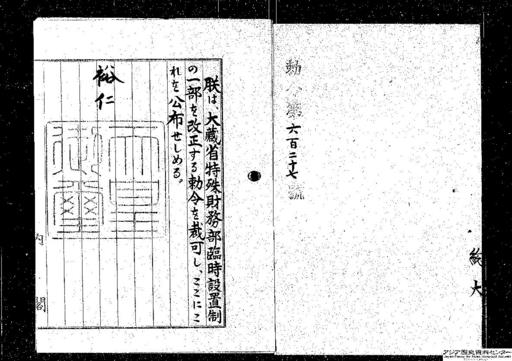 勅令第六百二十七號
朕は、大藏省特殊財務部臨時設置制
の一部を改正する勅令を裁可し、ここにこ
れを公布せしめる。
裕仁
天皇
御璽
内閣
アジア歴史資料センター
Japan Center for Asian Historical Records